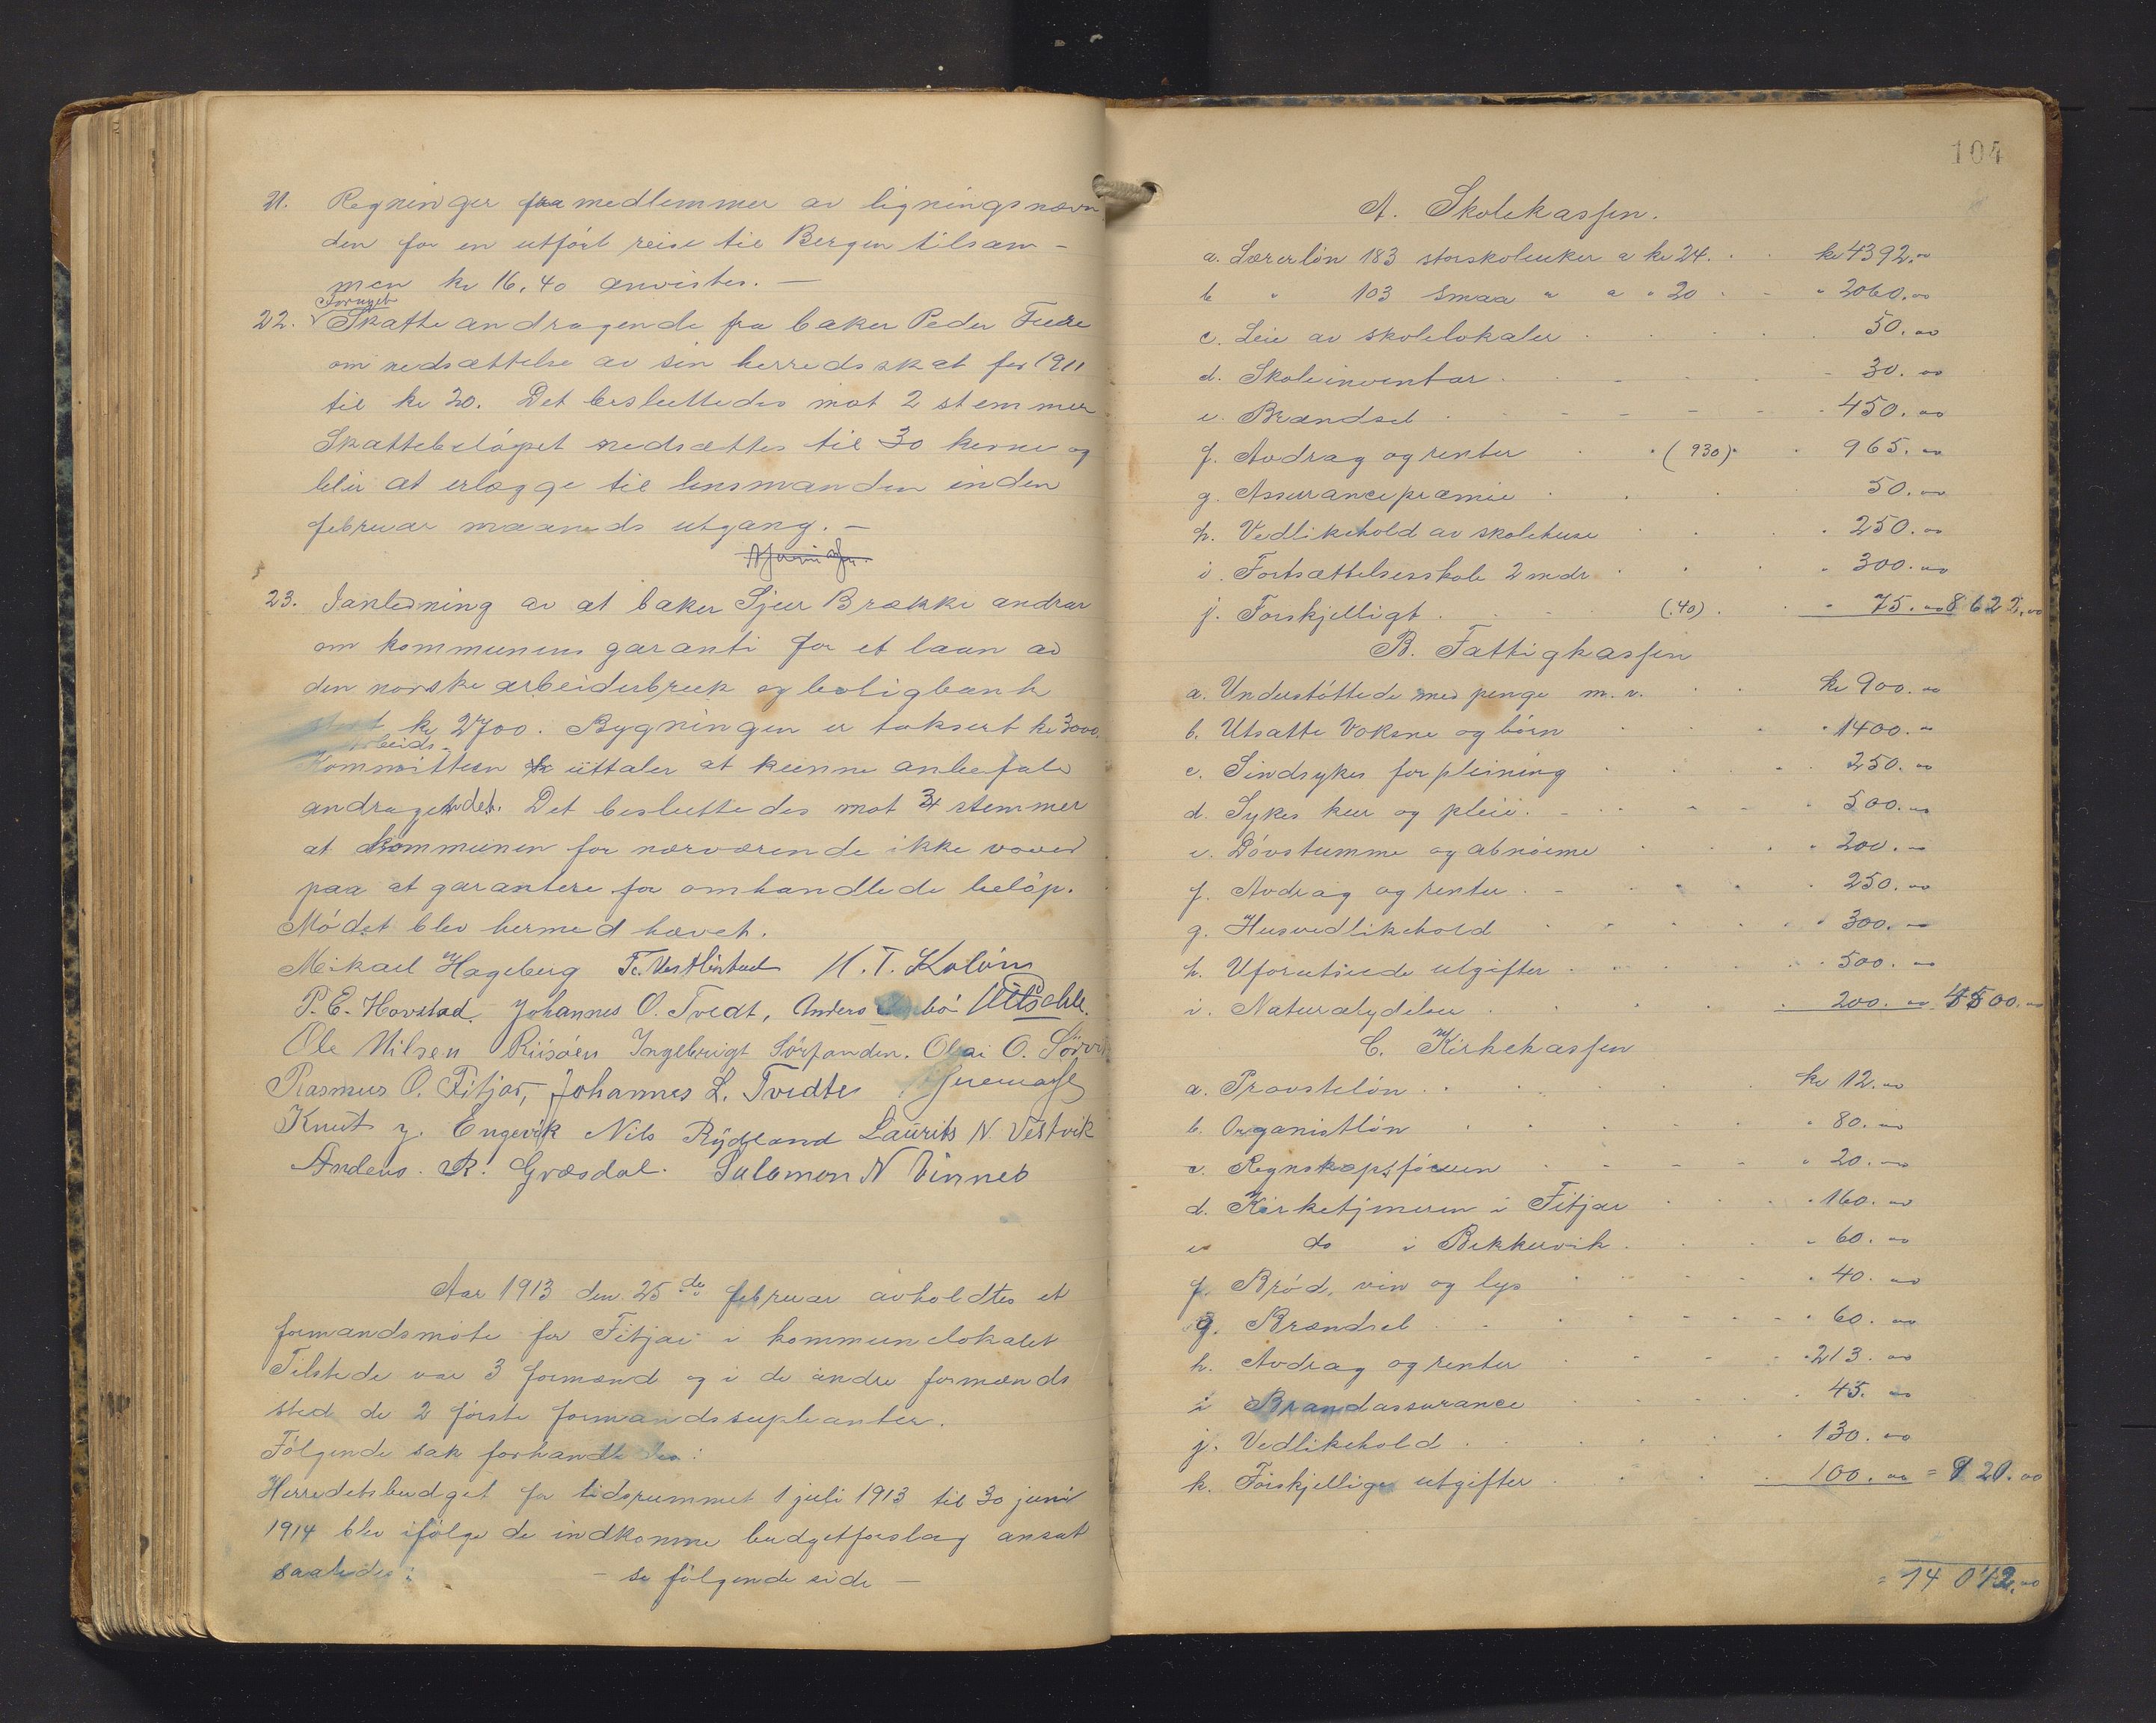 21. Regninger fra medlemmer av ligningsnævn
den for en utført reise til Bergen tilsam-
men kr 16,40 anvistes. -
Fornyet
22. Skatteandragende fra baker Peder
om nedsættelse av sin herredsskat for 1911
til kr 20. Det besluttedes mot 2 stemmer
Skattebeløpet nedsættes til 30 kroner og
blir at erlægge til lensmanden inden
februar maaneds utgang. -
23. I anledning av at baker Sjur Brække andrar
om kommunens garanti for et laan av
den norske arbeiderbruk og boligbank
stort kr 2700. Bygningen er taksert kr 3000.
Arbeids-
Kommitteen uttaler at kunne anbefale
andragendet. Det besluttedes mot 4 stemmer
at kommunen for nærværende ikke vover
paa at garantere for omhandlede beløp.
Mødet blev hermed hævet.
Mikael Hageberg H. T. Koløen
P. E. Havstad Johannes O. Tvedt, Anders
Ole Nilsen Riisøen Ingebrigt Sørfonden. Olai O.
Rasmus O. Fitjar, Johannes L. Tvedte
Knut J. Engevik Nils Rydland Laurits N. Vestvik
Anders. R. Græsdal. Salomon N Vinnes
Aar 1913 den 25de februar avholdtes et
formandsmøte for Fitjar i kommunelokalet
Tilstede var 3 formænd og i de andre formænds
sted de 2 første formandssupleanter.
Følgende sak forhandledes:
Herredsbudget for tidsrummet 1 juli 1913 til 30 juni
1914 blev ifølge de indkomne budgetforslag ansat
saaledes:
- se følgende side -
104
A. Skolekassen.
a. Lærerløn 183 storskoleuker a kr 24. . . kr 4392.00
b " 103 smaa " a " 20 . - " 2060.00
c. Leie av skolelokaler . . . 50.00
d. Skoleinventar . - - - 30.00
e. Brændsel . - - - 450.00
f. Avdrag og renter . (930) . 965.00
g. Assurancepræmie . . . 50.00
h. Vedlikehold av skolehuse . . . 250.00
i. Fortsættelsesskole 2 mdr . . " 300.00
j. Forskjelligt . . (.40) . . " 75.00 8622.00
B. Fattigkassen
a. Understøttede med penge m. v. . . kr 900.00
b. Utsatte Voksne og børn . . . " 1400.00
c. Sindsykes forpleining . . . 250.00
d. Sykes kur og pleie. - . . 500.00
e. Døvstumme og abnorme . . . " 200.00
f. Avdrag og renter . - . . 250.00
g. Husvedlikehold . . . " 300.00
h. Uforutseede utgifter . . . 500.00
i. Naturalydelser . . . 200.00 4500.00
C. Kirkekassen
a. Provsteløn . . . kr 12.00
b. Organistløn . . . " 80.00
c. Regnskapsføreren . - - " 20.00
d. Kirketjeneren i Fitjar . . . " 160.00
e do i Bekkervik . . . " 60.00
f. Brød, vin og lys . . . " 40.00
g. Brændsel . . . " 60.00
h. Avdrag og renter . . . " 213.00
i Brandassurance . . . 45.00
j. Vedlikehold . . . 130.00
k. Forskjellige utgifter . . . 100.00 = 920.00
= 14 042.00